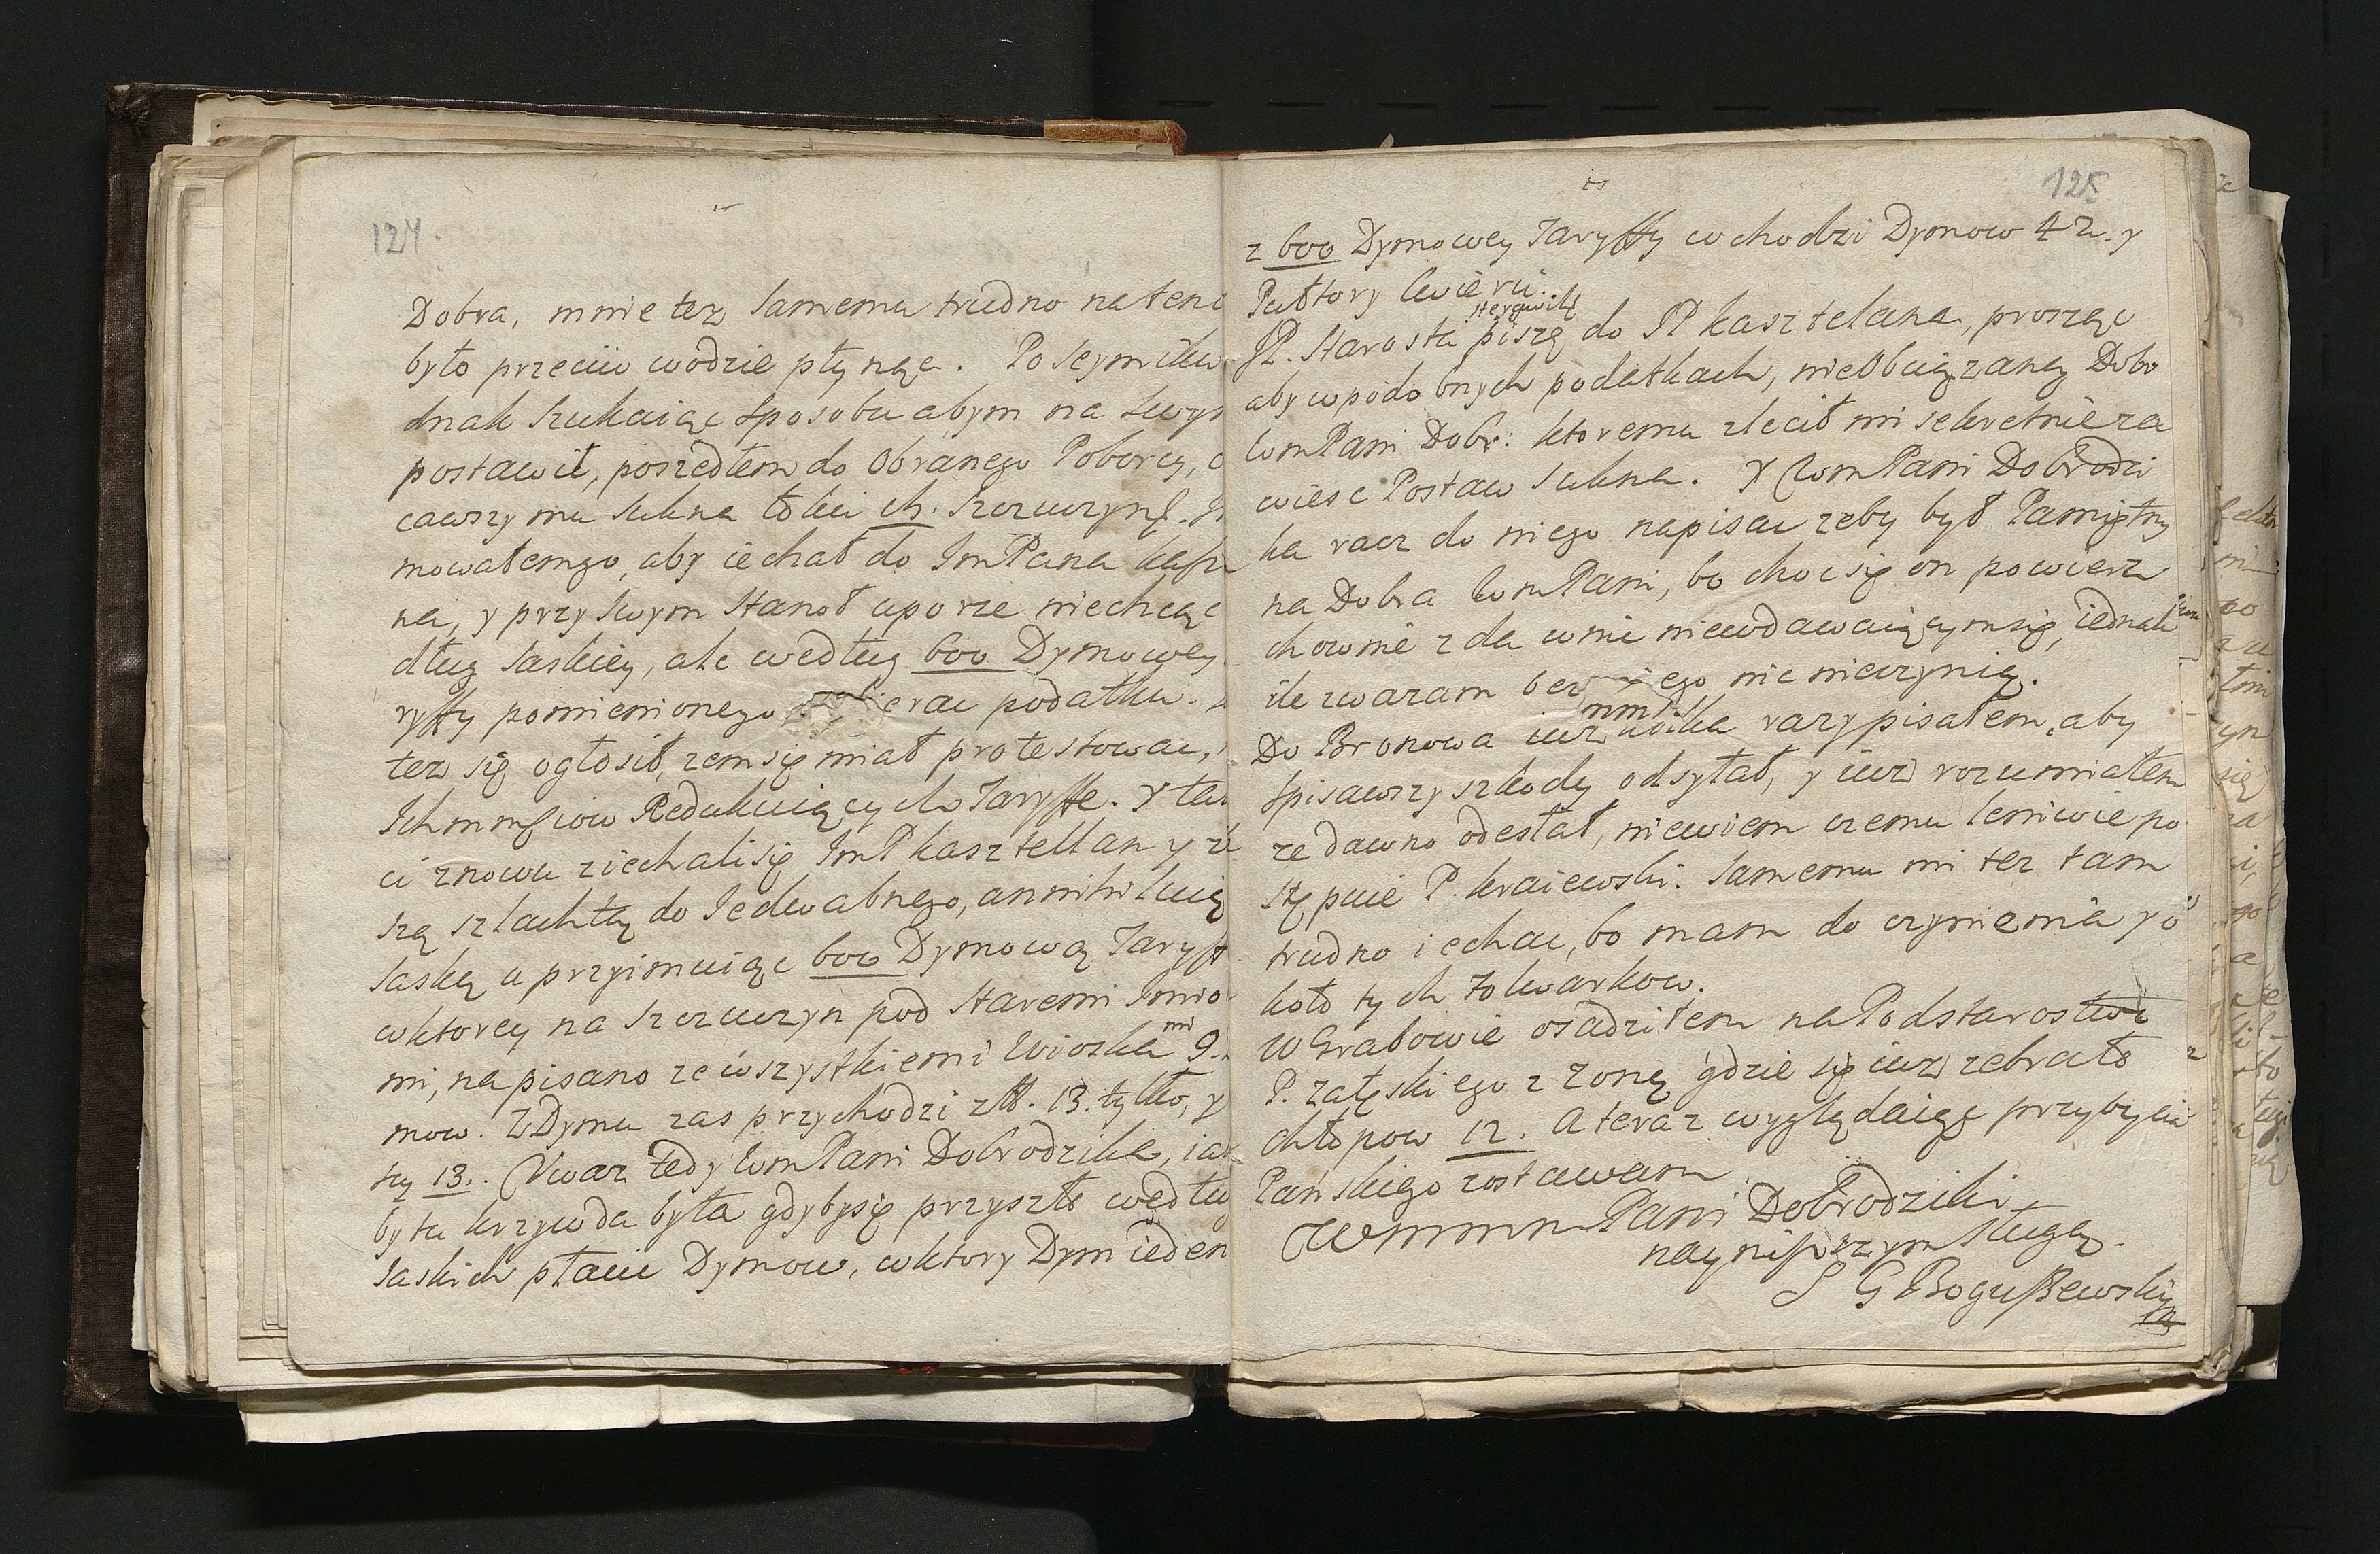 124.
Dobra, mnie tez samemu trudno naten
było przeciw wodzie płynąc. Po Seymiku
dnak szukaiąc sposobu abym na swym
postawił, poszedłem do Obranego Poborcy,
cawszy mu sukna łokci
mowałemgo, aby iechał do ImPana
na, y przy swym stanoł uporze niechcąc
dług saskiey, ale według 600 Dymowey
ryffy pomienionego podatku.
tez się ogłosił, zem się miał protestowac,
Redukuiących Taryffe. Y
ci znowu ziechali się ImP kasztellan y
szą szlachtą do Jedwabnego, annihiluią
saską a przyimuiąc 600 Dymową Taryf
wktorey na Szczuczyn pod staremi
mi, napisano ze wszystkiemi Wioskami 9.
mow. Z Dymu zas przychodzi złł. 13. tylko, y
szy 13. Uwaz tedy WmPani Dobrodzika,
by tu krzywda była gdyby się przyszło wedłu
saskich płacic Dymow, wktory Dym ieden
125
z 600 Dymowey Taryffy wchodzi Dymow 42. y
Pułtory Cwierci.
JP. Starosta piszę do JP kasztelana, prosząc
aby wpodobnych podatkach, nieObciązaney Dobr
WmPani Dobr: ktoremu zlecił mi sekretnie za
wiesc Postaw sukna. Y WmPani Dobrodzi
ka racz do niego napisac zeby był Pamiętny
na Dobra WmPani, bo choc się on powierz
chownie zda wnic niewdawaiącym się, iednak
ile zwazam bez niego nic nieczynią.
Do Bronowa iuz kilka razy pisałem, aby
spisawszy szkody odsyłał, y iuz rozumiałem
ze dawno odesłał, niewiem czemu leniwie po
stępuie P. kraiewski. Samemu mi tez tam
trudno iechac, bo mam do czynienia y o
koło tych folwarkow.
W Grabowie osadziłem na Podstarostwie
P. załęskiego z zoną gdzie się iuz zebrało
chłopow 12. A teraz wyglądaiąc przybycia
Panskiego zostawam
Wmmm Pani Dobrodziki
nayniszszym sługą.
S G Boguszewski